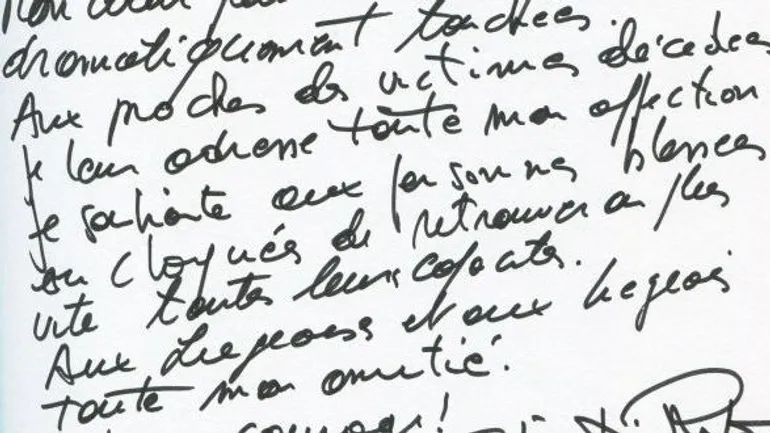 Mon cœur
dramatiquement touchées.
Aux proches des victimes décédées
je leur adresse toute mon affection
Je souhaite aux personnes blessées
ou choquées de retrouver au plus
vite toutes leurs capacités.
Aux Liégeoises et aux Liégeois
toute mon amitié.
courage!